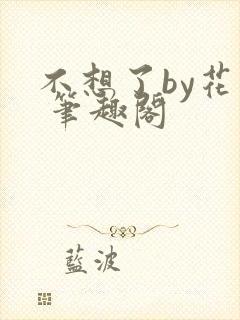 不想了by花
筆趣閣
藍波